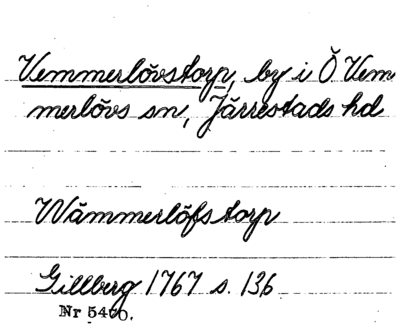 Vemmerlövstorp, by i Ö Vem
merlövs sn, Järrestads hd
Wämmerlöfstorp
Gillberg 1767 s. 136
Nr 5400.